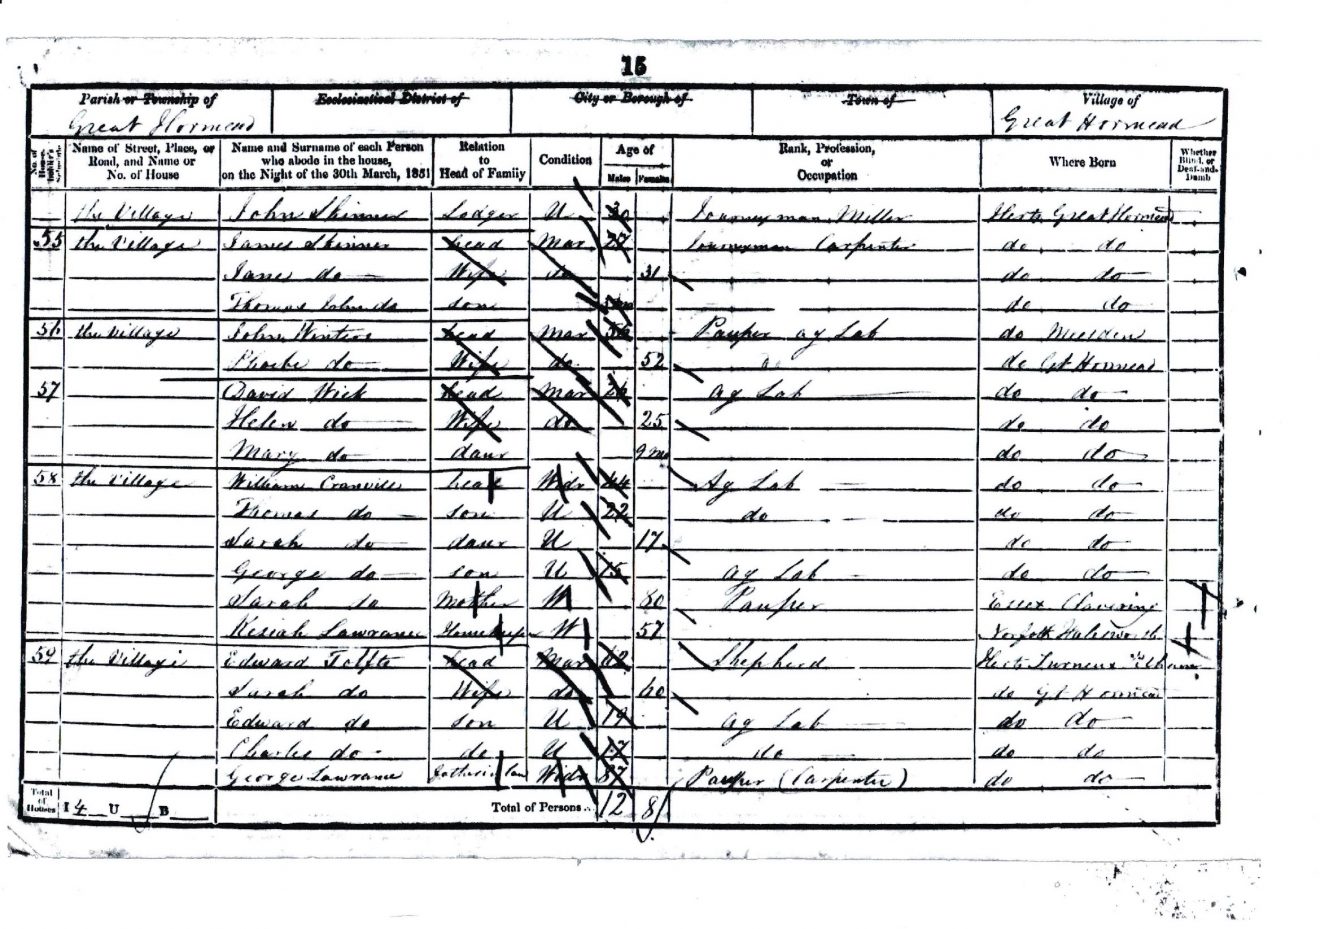 15
Parish or Township of Ecclesiastical District of City or Borough of Town of Village of
Great Hormead Great Hormead
No. of House- Name of Street, Place, or Road, and Name or No. of House Name and Surname of each Person who abode in the house, on the Night of the 30th March, 1851 Relation to Head of Family Condition Age of Males Females Rank, Profession, or Occupation Where Born Whether Blind, or Deaf-and-Dumb
the Village John Skinner Lodger U 30 Journeyman Miller Herts Great Hormead
55 the Village James Skinner head Mar 27 Journeyman Carpenter do do
Jane do Wife do 31 do do
Thomas John do son do do
56 the Village John Winters head Mar Pauper ag Lab do Meesden
Phoebe do Wife do 52 do Gt Hormead
57 David Wick head Mar 26 Ag Lab do do
Helen do Wife do 25 do do
Mary do daur 9 mo do do
58 the Village William Cranville head Widr 44 Ag Lab do do
Thomas do son U 22 do do do
Sarah do daur U 17 do do
George do son U 15 Ag Lab do do
Sarah do Mother W 80 Pauper Essex Clavering
Kesiah Lawrance Housekeeper W 57 Norfolk
59 the Village Edward Tolfts head Mar 62 Shepherd Herts Furneux
Sarah do Wife do 60 do Gt Hormead
Edward do son U 19 Ag Lab do do
Charles do do U 17 do do do
George Lawrance father in law Widr 87 Pauper (Carpenter) do do
Total of Houses I 4 U B Total of Persons.. 12 8